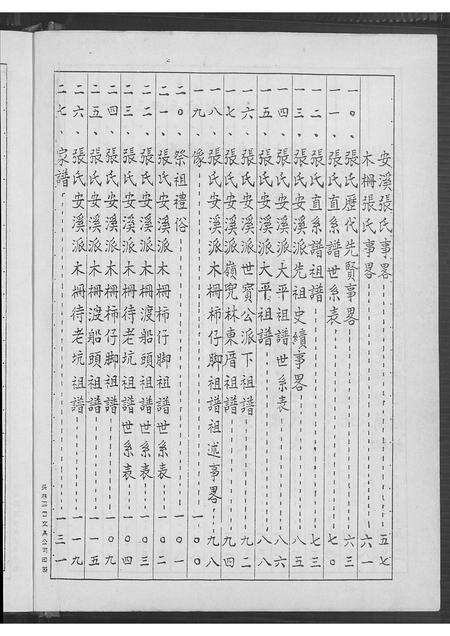 安溪張氏事畧 五七
木柵張氏事畧 六一
一０、張氏歷代先賢事畧 六三
一一、張氏直系譜世系表 七０
一二、張氏直系譜祖譜 七三
一三、張氏安溪派先祖史績事畧 八五
一四、張氏安溪派大平祖譜世系表 八六
一五、張氏安溪派大平祖譜 八八
一六、張氏安溪派世賓公派下祖譜 九二
一七、張氏安溪派嶺兜林東厝祖譜 九四
一八、張氏安溪派木柵柿仔脚祖譜祖述事畧 九八
一九、像 一００
二０、祭祖禮俗 一０一
二一、張氏安溪派木柵柿仔脚祖譜世系表 一０二
二二、張氏安溪派木柵渡船頭祖譜世系表 一０三
二三、張氏安溪派木柵待老坑祖譜世系表 一０四
二四、張氏安溪派木柵柿仔脚祖譜 一０九
二五、張氏安溪派木柵渡船頭祖譜 一一五
二六、張氏安溪派木柵待老坑祖譜 一一九
二七、家譜 一三一